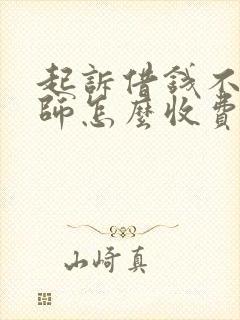 起訴借錢不
師怎麼收費
山崎真